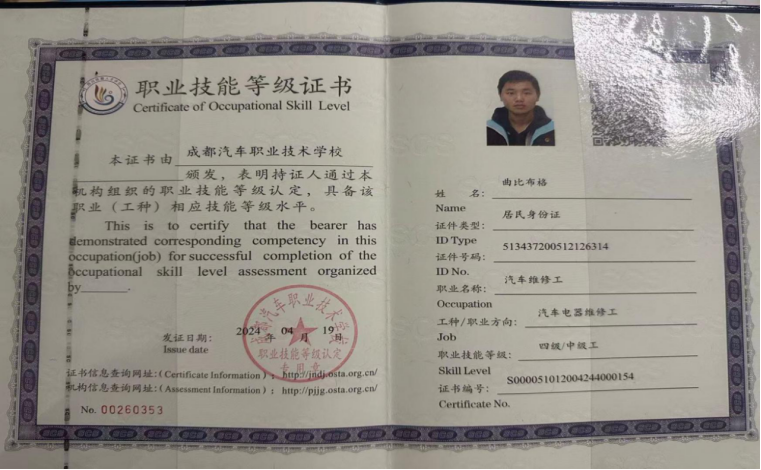 职业技能等级证书
Certificate of Occupational Skill Level
本证书由 成都汽车职业技术学校
颁发，表明持证人通过本
机构组织的职业技能等级认定，具备该
职业（工种）相应技能等级水平。
This is to certify that the bearer has
demonstrated corresponding competency in this
occupation(job) for successful completion of the
occupational skill level assessment organized
by .
发证日期： 2024 年 04 月 19 日
Issue date
成都汽车职业技术学校
职业技能等级认定
专用章
证书信息查询网址：（Certificate Information）：http://jndj.osta.org.cn/
机构信息查询网址：（Assessment Information）：http://pjjg.osta.org.cn/
No. 00260353
姓 名： 曲比布格
Name
证件类型： 居民身份证
ID Type
证件号码： 513437200512126314
ID No.
职业名称： 汽车维修工
Occupation
工种/职业方向： 汽车电器维修工
Job
职业技能等级： 四级/中级工
Skill Level
证书编号： S000051012004244000154
Certificate No.